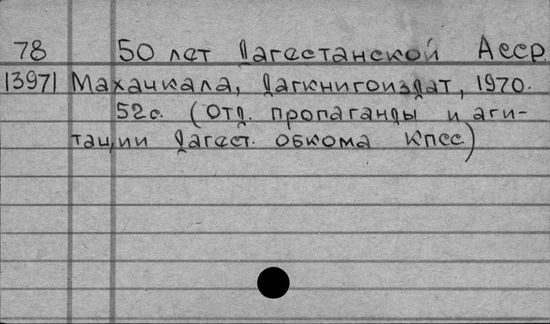 78 50 лет Дагестанской АССР
13971 Махачкала, Дагкнигоиздат, 1970.
52с. (Отд. пропаганды и аги-
тации Дагест. обкома КПСС)